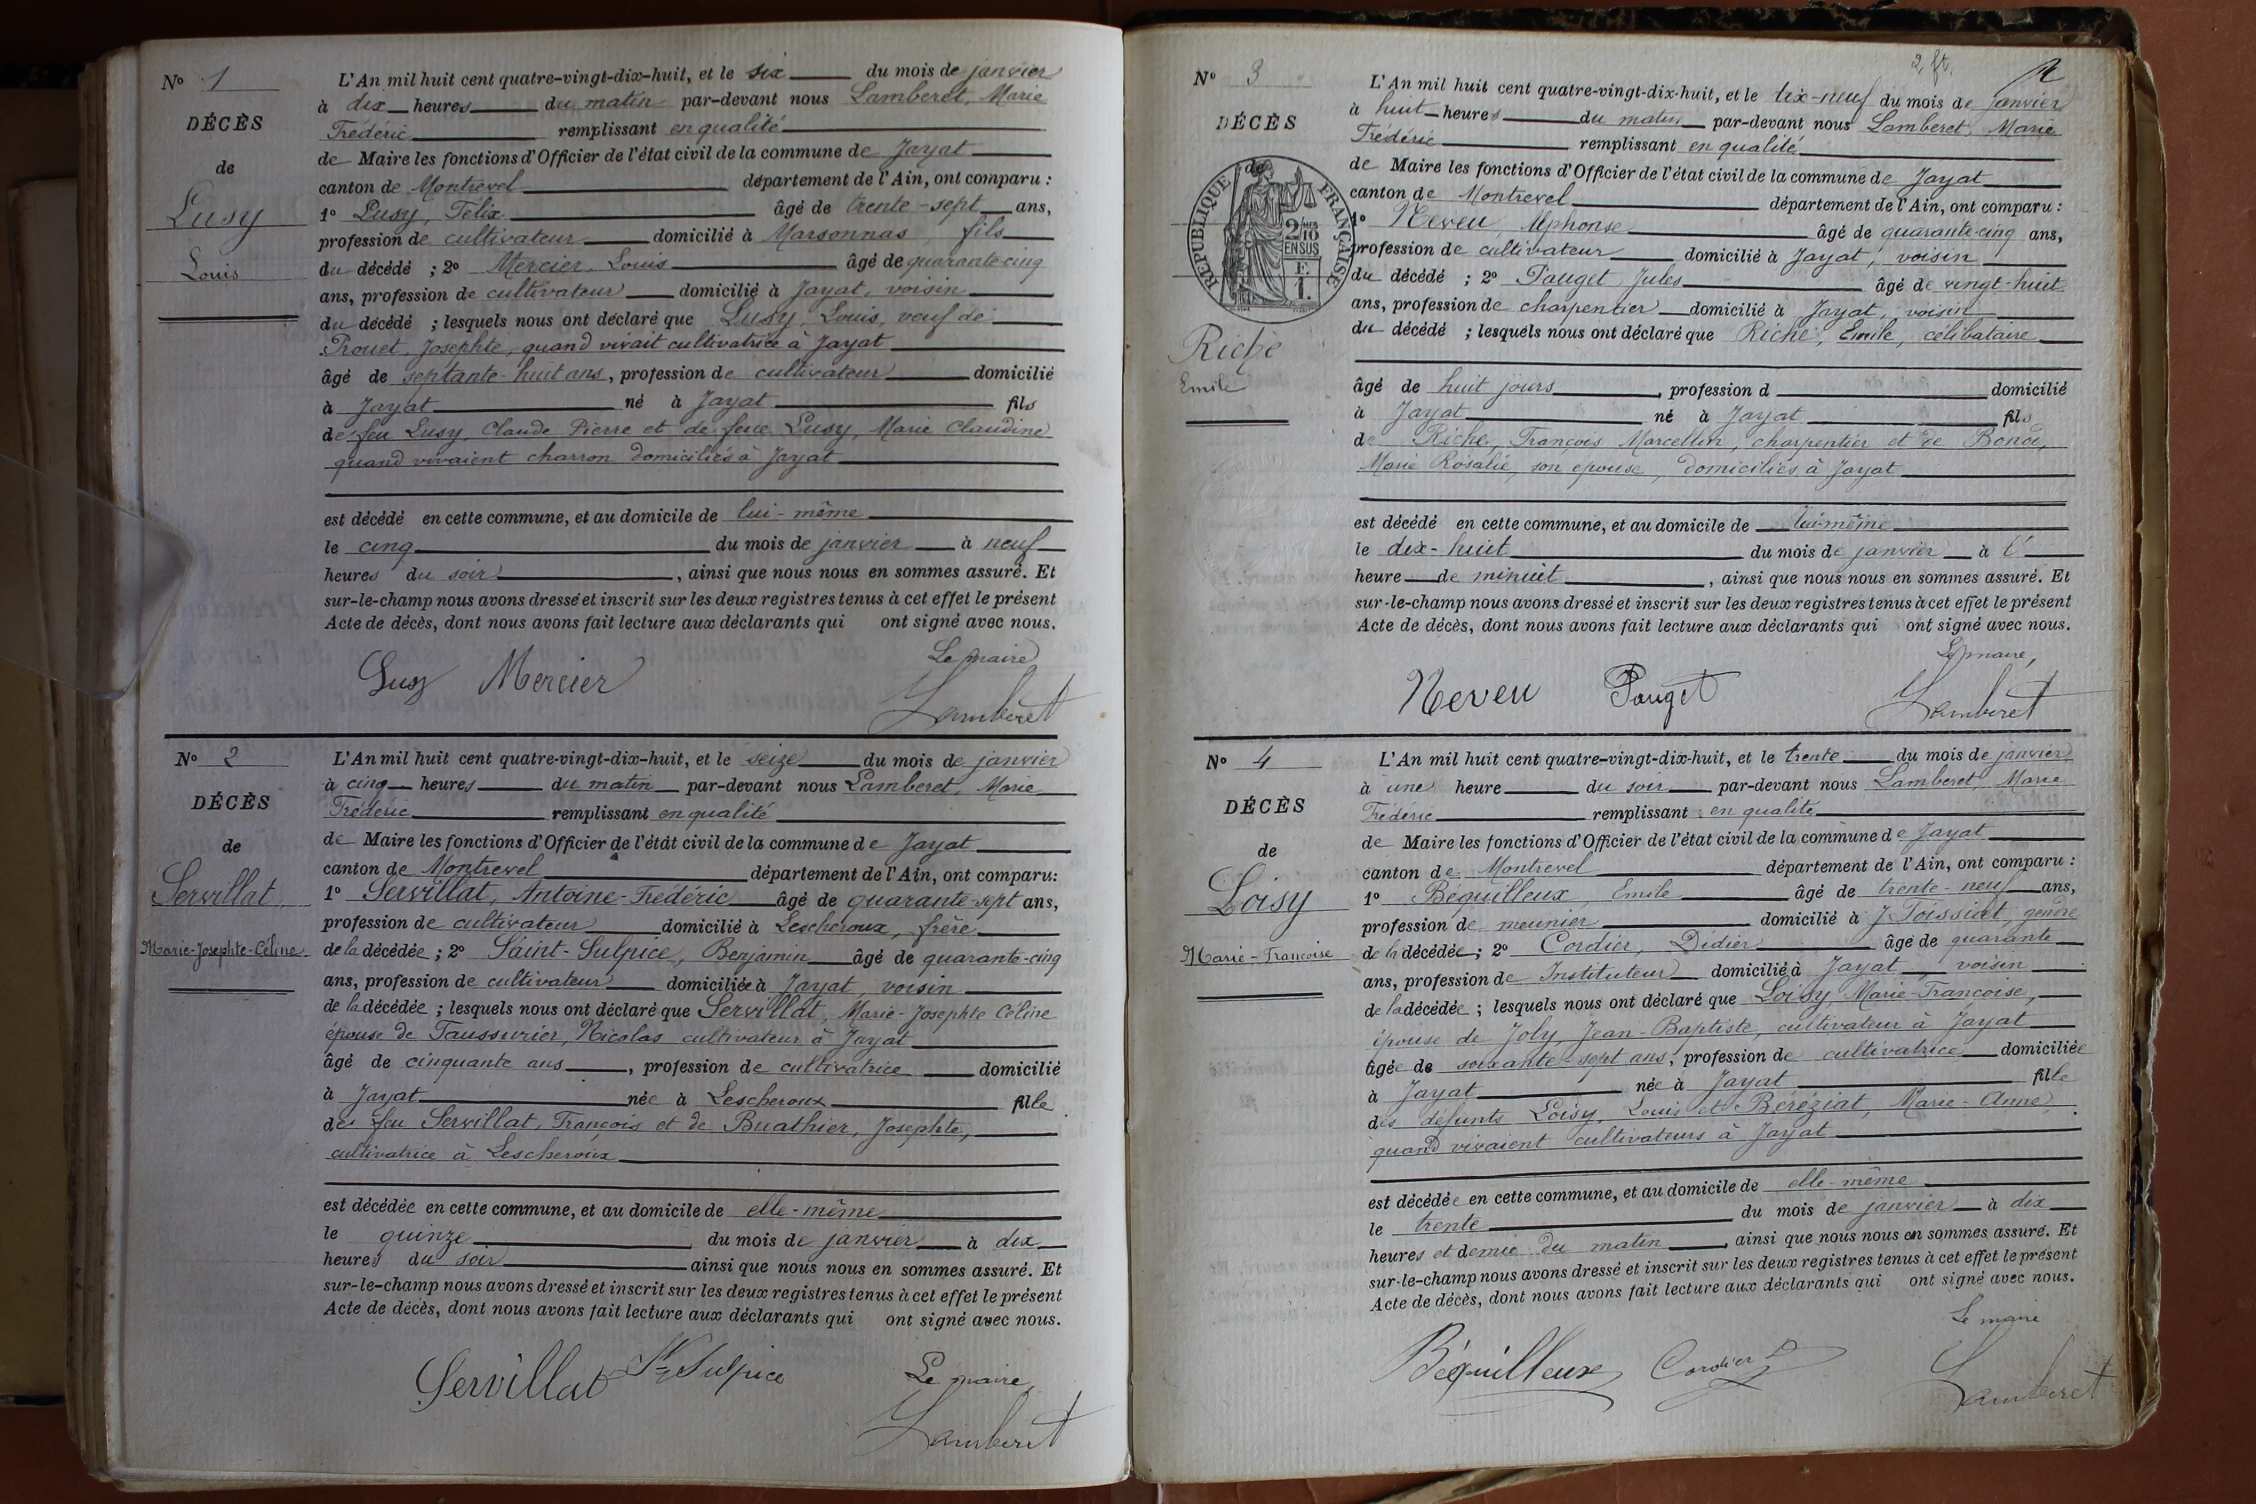 N° 1
DÉCÈS
de
Lusy
Louis
L'An mil huit cent quatre-vingt-dix-huit, et le six du mois de janvier
à dix heures du matin par-devant nous Lamberet, Marie
Frédéric remplissant en qualité
de Maire les fonctions d'Officier de l'état civil de la commune de Jayat
canton de Montrevel département de l'Ain, ont comparu :
1° Lusy, Félix âgé de trente-sept ans,
profession de cultivateur domicilié à Marsonnas fils
du décédé ; 2° Mercier, Louis âgé de quarante-cinq
ans, profession de cultivateur domicilié à Jayat, voisin
du décédé ; lesquels nous ont déclaré que Lusy, Louis, veuf de
Prouet, Josephte, quand vivait cultivatrice à Jayat
âgé de septante-huit ans, profession de cultivateur domicilié
à Jayat né à Jayat fils
de feu Lusy, Claude Pierre et de feue Lusy, Marie Claudine
quand vivaient charron domiciliés à Jayat
est décédé en cette commune, et au domicile de lui-même
le cinq du mois de janvier à neuf
heures du soir, ainsi que nous nous en sommes assuré. Et
sur-le-champ nous avons dressé et inscrit sur les deux registres tenus à cet effet le présent
Acte de décès, dont nous avons fait lecture aux déclarants qui ont signé avec nous.
Le maire
Lusy Mercier Lamberet
N° 2
DÉCÈS
de
Servillat,
Marie-Josephte-Céline
L'An mil huit cent quatre-vingt-dix-huit, et le seize du mois de janvier
à cinq heures du matin par-devant nous Lamberet, Marie
Frédéric remplissant en qualité
de Maire les fonctions d'Officier de l'état civil de la commune de Jayat
canton de Montrevel département de l'Ain, ont comparu:
1° Servillat, Antoine-Frédéric âgé de quarante-sept ans,
profession de cultivateur domicilié à Lescheroux, frère
de la décédée ; 2° Saint-Sulpice, Benjamin âgé de quarante-cinq
ans, profession de cultivateur domiciliée à Jayat, voisin
de la décédée ; lesquels nous ont déclaré que Servillat, Marie-Josephte Céline
épouse de Taussurier, Nicolas cultivateur à Jayat
âgé de cinquante ans, profession de cultivatrice domicilié
à Jayat née à Lescheroux fille
de feu Servillat, François et de Buathier, Josephte,
cultivatrice à Lescheroux
est décédée en cette commune, et au domicile de elle-même
le quinze du mois de janvier à dix
heures du soir ainsi que nous nous en sommes assuré. Et
sur-le-champ nous avons dressé et inscrit sur les deux registres tenus à cet effet le présent
Acte de décès, dont nous avons fait lecture aux déclarants qui ont signé avec nous.
Servillat St Sulpice Le maire,
Lamberet
2
N° 3
DÉCÈS
de
RÉPUBLIQUE FRANÇAISE
2/10
EN SUS
Riche
Emile
L'An mil huit cent quatre-vingt-dix-huit, et le dix-neuf du mois de janvier
à huit heures du matin par-devant nous Lamberet, Marie
Frédéric remplissant en qualité
de Maire les fonctions d'Officier de l'état civil de la commune de Jayat
canton de Montrevel département de l'Ain, ont comparu :
1° Neveu, Alphonse âgé de quarante-cinq ans,
profession de cultivateur domicilié à Jayat, voisin
du décédé ; 2° Pauget Jules âgé de vingt-huit
ans, profession de charpentier domicilié à Jayat, voisin
du décédé ; lesquels nous ont déclaré que Riche, Emile, célibataire
âgé de huit jours, profession d domicilié
à Jayat né à Jayat fils
de Riche, François Marcellin, charpentier et de
Marie Rosalie, son épouse, domiciliés à Jayat
est décédé en cette commune, et au domicile de lui-même
le dix-huit du mois de janvier à l'
heure de minuit, ainsi que nous nous en sommes assuré. Et
sur-le-champ nous avons dressé et inscrit sur les deux registres tenus à cet effet le présent
Acte de décès, dont nous avons fait lecture aux déclarants qui ont signé avec nous.
Le maire,
Neveu Pauget Lamberet
N° 4
DÉCÈS
de
Loisy
Marie-Françoise
L'An mil huit cent quatre-vingt-dix-huit, et le trente du mois de janvier
à une heure du soir par-devant nous Lamberet, Marie
Frédéric remplissant en qualité
de Maire les fonctions d'Officier de l'état civil de la commune de Jayat
canton de Montrevel département de l'Ain, ont comparu :
1° Béquilleux, Emile âgé de trente-neuf ans,
profession de meunier domicilié à gendre
de la décédée ; 2° Cordier, Didier âgé de quarante
ans, profession de Instituteur domicilié à Jayat, voisin
de la décédée ; lesquels nous ont déclaré que Loisy Marie-Françoise,
épouse de Joly, Jean-Baptiste, cultivateur à Jayat
âgée de soixante-sept ans, profession de cultivatrice domiciliée
à Jayat née à Jayat fille
des défunts Loisy, Louis et Béréziat, Marie-Anne,
quand vivaient cultivateurs à Jayat
est décédée en cette commune, et au domicile de elle-même
le trente du mois de janvier à dix
heures et demie du matin, ainsi que nous nous en sommes assuré. Et
sur-le-champ nous avons dressé et inscrit sur les deux registres tenus à cet effet le présent
Acte de décès, dont nous avons fait lecture aux déclarants qui ont signé avec nous.
Le maire
Béquilleux Cordier D Lamberet